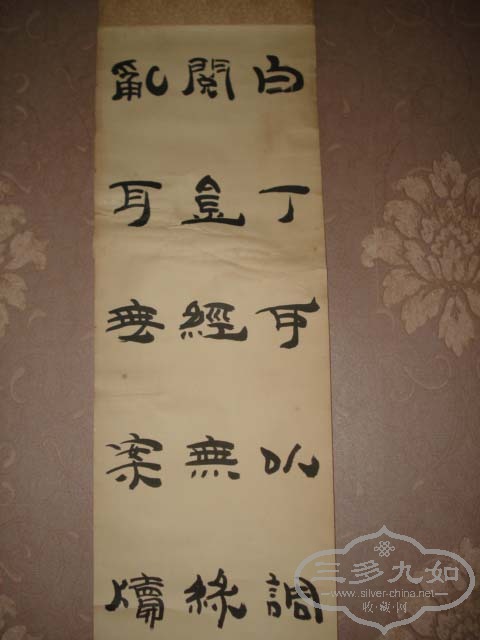 白丁可以調
閱金經無絲
亂耳無案牘
三多九如
www.silver-china.net
收藏网